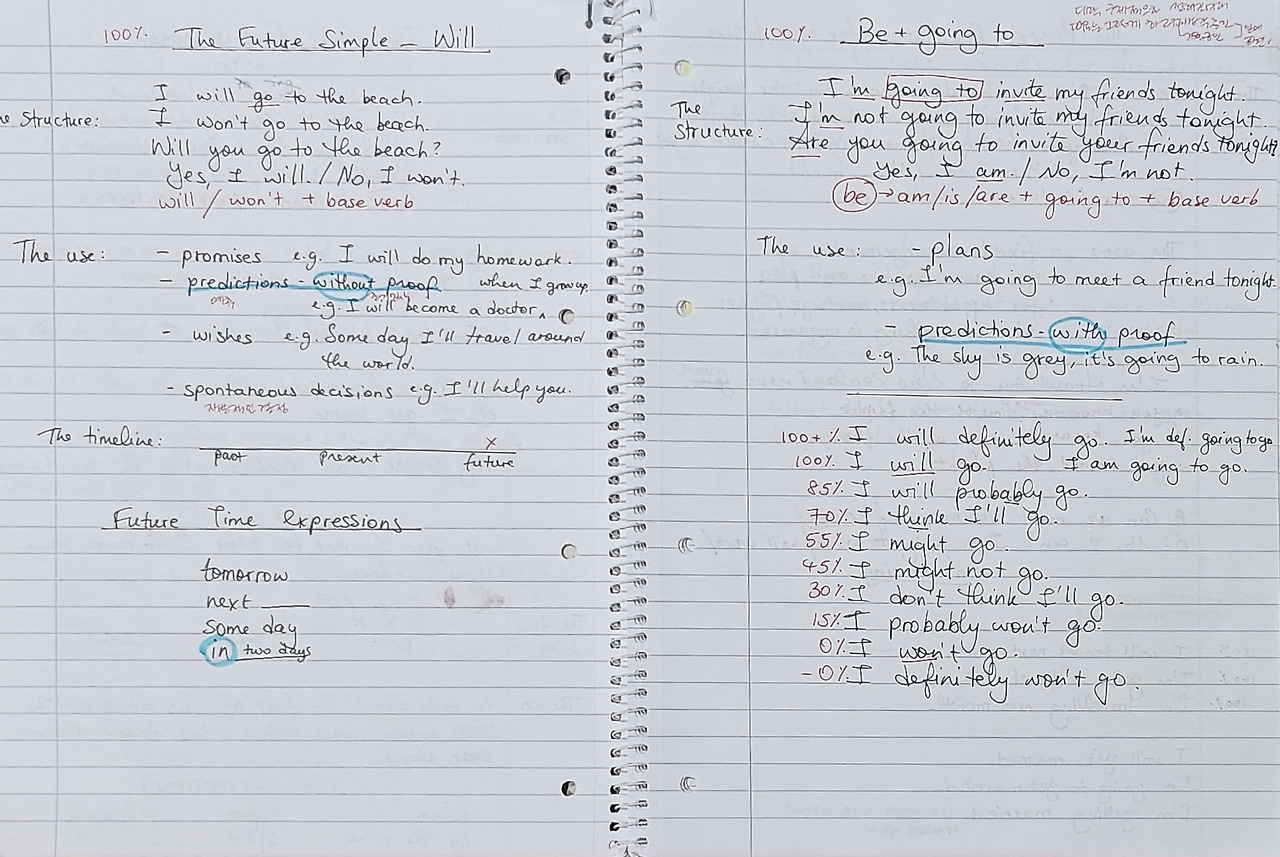 100% The Future Simple - Will
I will go to the beach.
The Structure: I won't go to the beach.
Will you go to the beach?
Yes, I will. / No, I won't.
will / won't + base verb
The use: - promises e.g. I will do my homework.
- predictions - without proof when I grow up
예측
e.g. I will become a doctor ^
- wishes e.g. Some day I'll travel around
the world.
- spontaneous decisions e.g. I'll help you.
The timeline: x
past present future
Future Time expressions
tomorrow
next ___
Some day
in two days
100% Be + going to
I'm going to invite my friends tonight.
The Structure: I'm not going to invite my friends tonight.
Are you going to invite your friends tonight?
Yes, I am. / No, I'm not.
be → am/is/are + going to + base verb
The use: - plans
e.g. I'm going to meet a friend tonight.
- predictions - with proof
e.g. The sky is grey, it's going to rain.
100+% I will definitely go. I'm def. going to go
100% I will go. I am going to go.
85% I will probably go.
70% I think I'll go.
55% I might go.
45% I might not go.
30% I don't think I'll go.
15% I probably won't go.
0% I won't go.
-0% I definitely won't go.